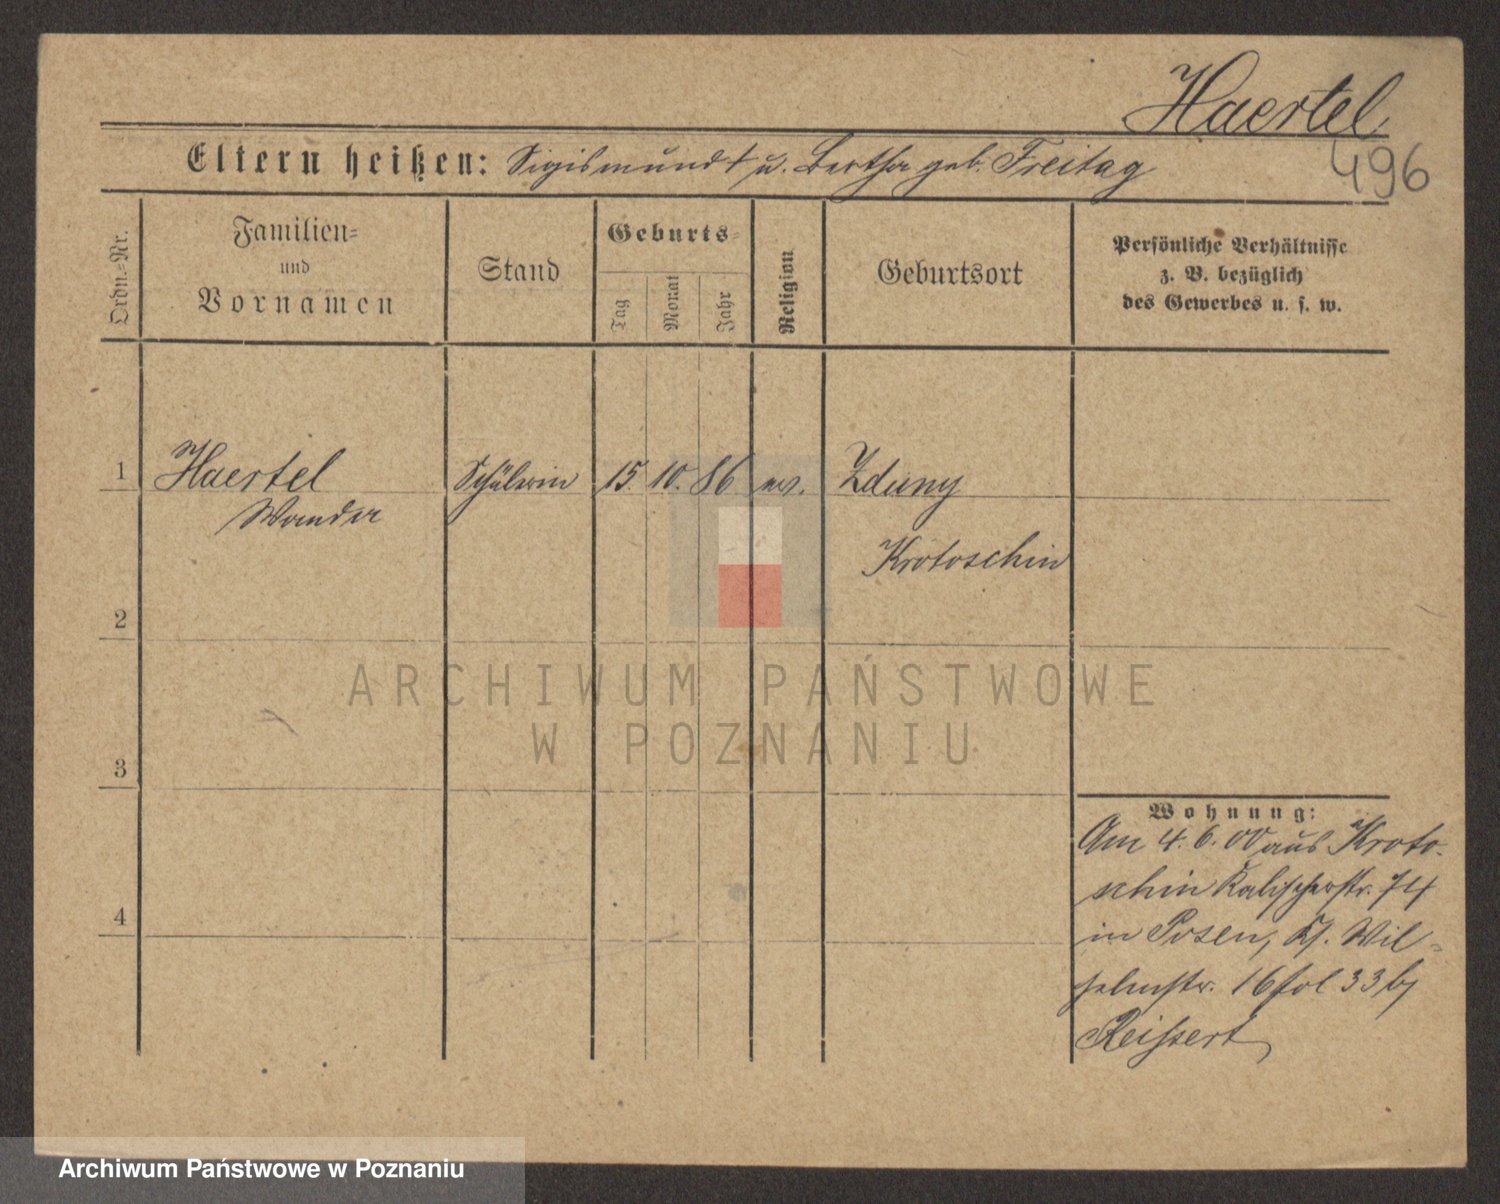 Haertel
496
Eltern heißen: Sigismund † u. Bertha geb. Freitag
Ordn.=Nr.
Familien=
und
Vornamen
Stand
Geburts=
Tag
Monat
Jahr
Religion
Geburtsort
Persönliche Verhältnisse
z. B. bezüglich
des Gewerbes u. s. w.
1
Haertel
Schülerin
15. 10. 86
ev.
Zduny
Wanda
Krotoschin
2
ARCHIWUM PAŃSTWOWE
W POZNANIU
3
Wohnung:
Am 4. 6. 00 aus Kroto-
schin Kalischerstr. 74
in Posen, Wil-
helmstr. 16 fol 33 b/
Reissert
4
Archiwum Państwowe w Poznaniu